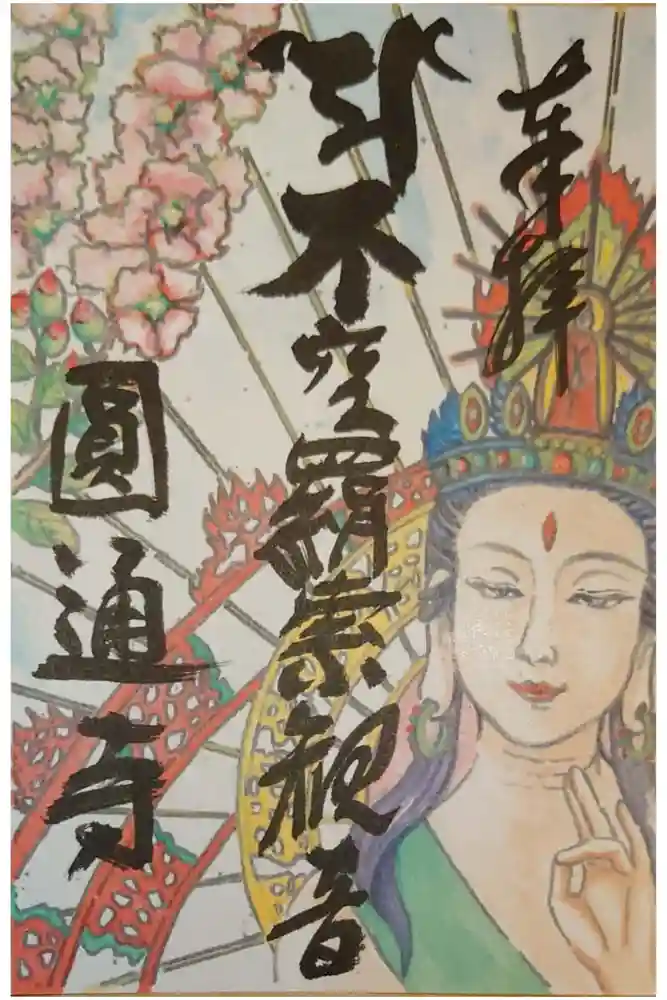 奉拝
不空羂索観音
圓通寺